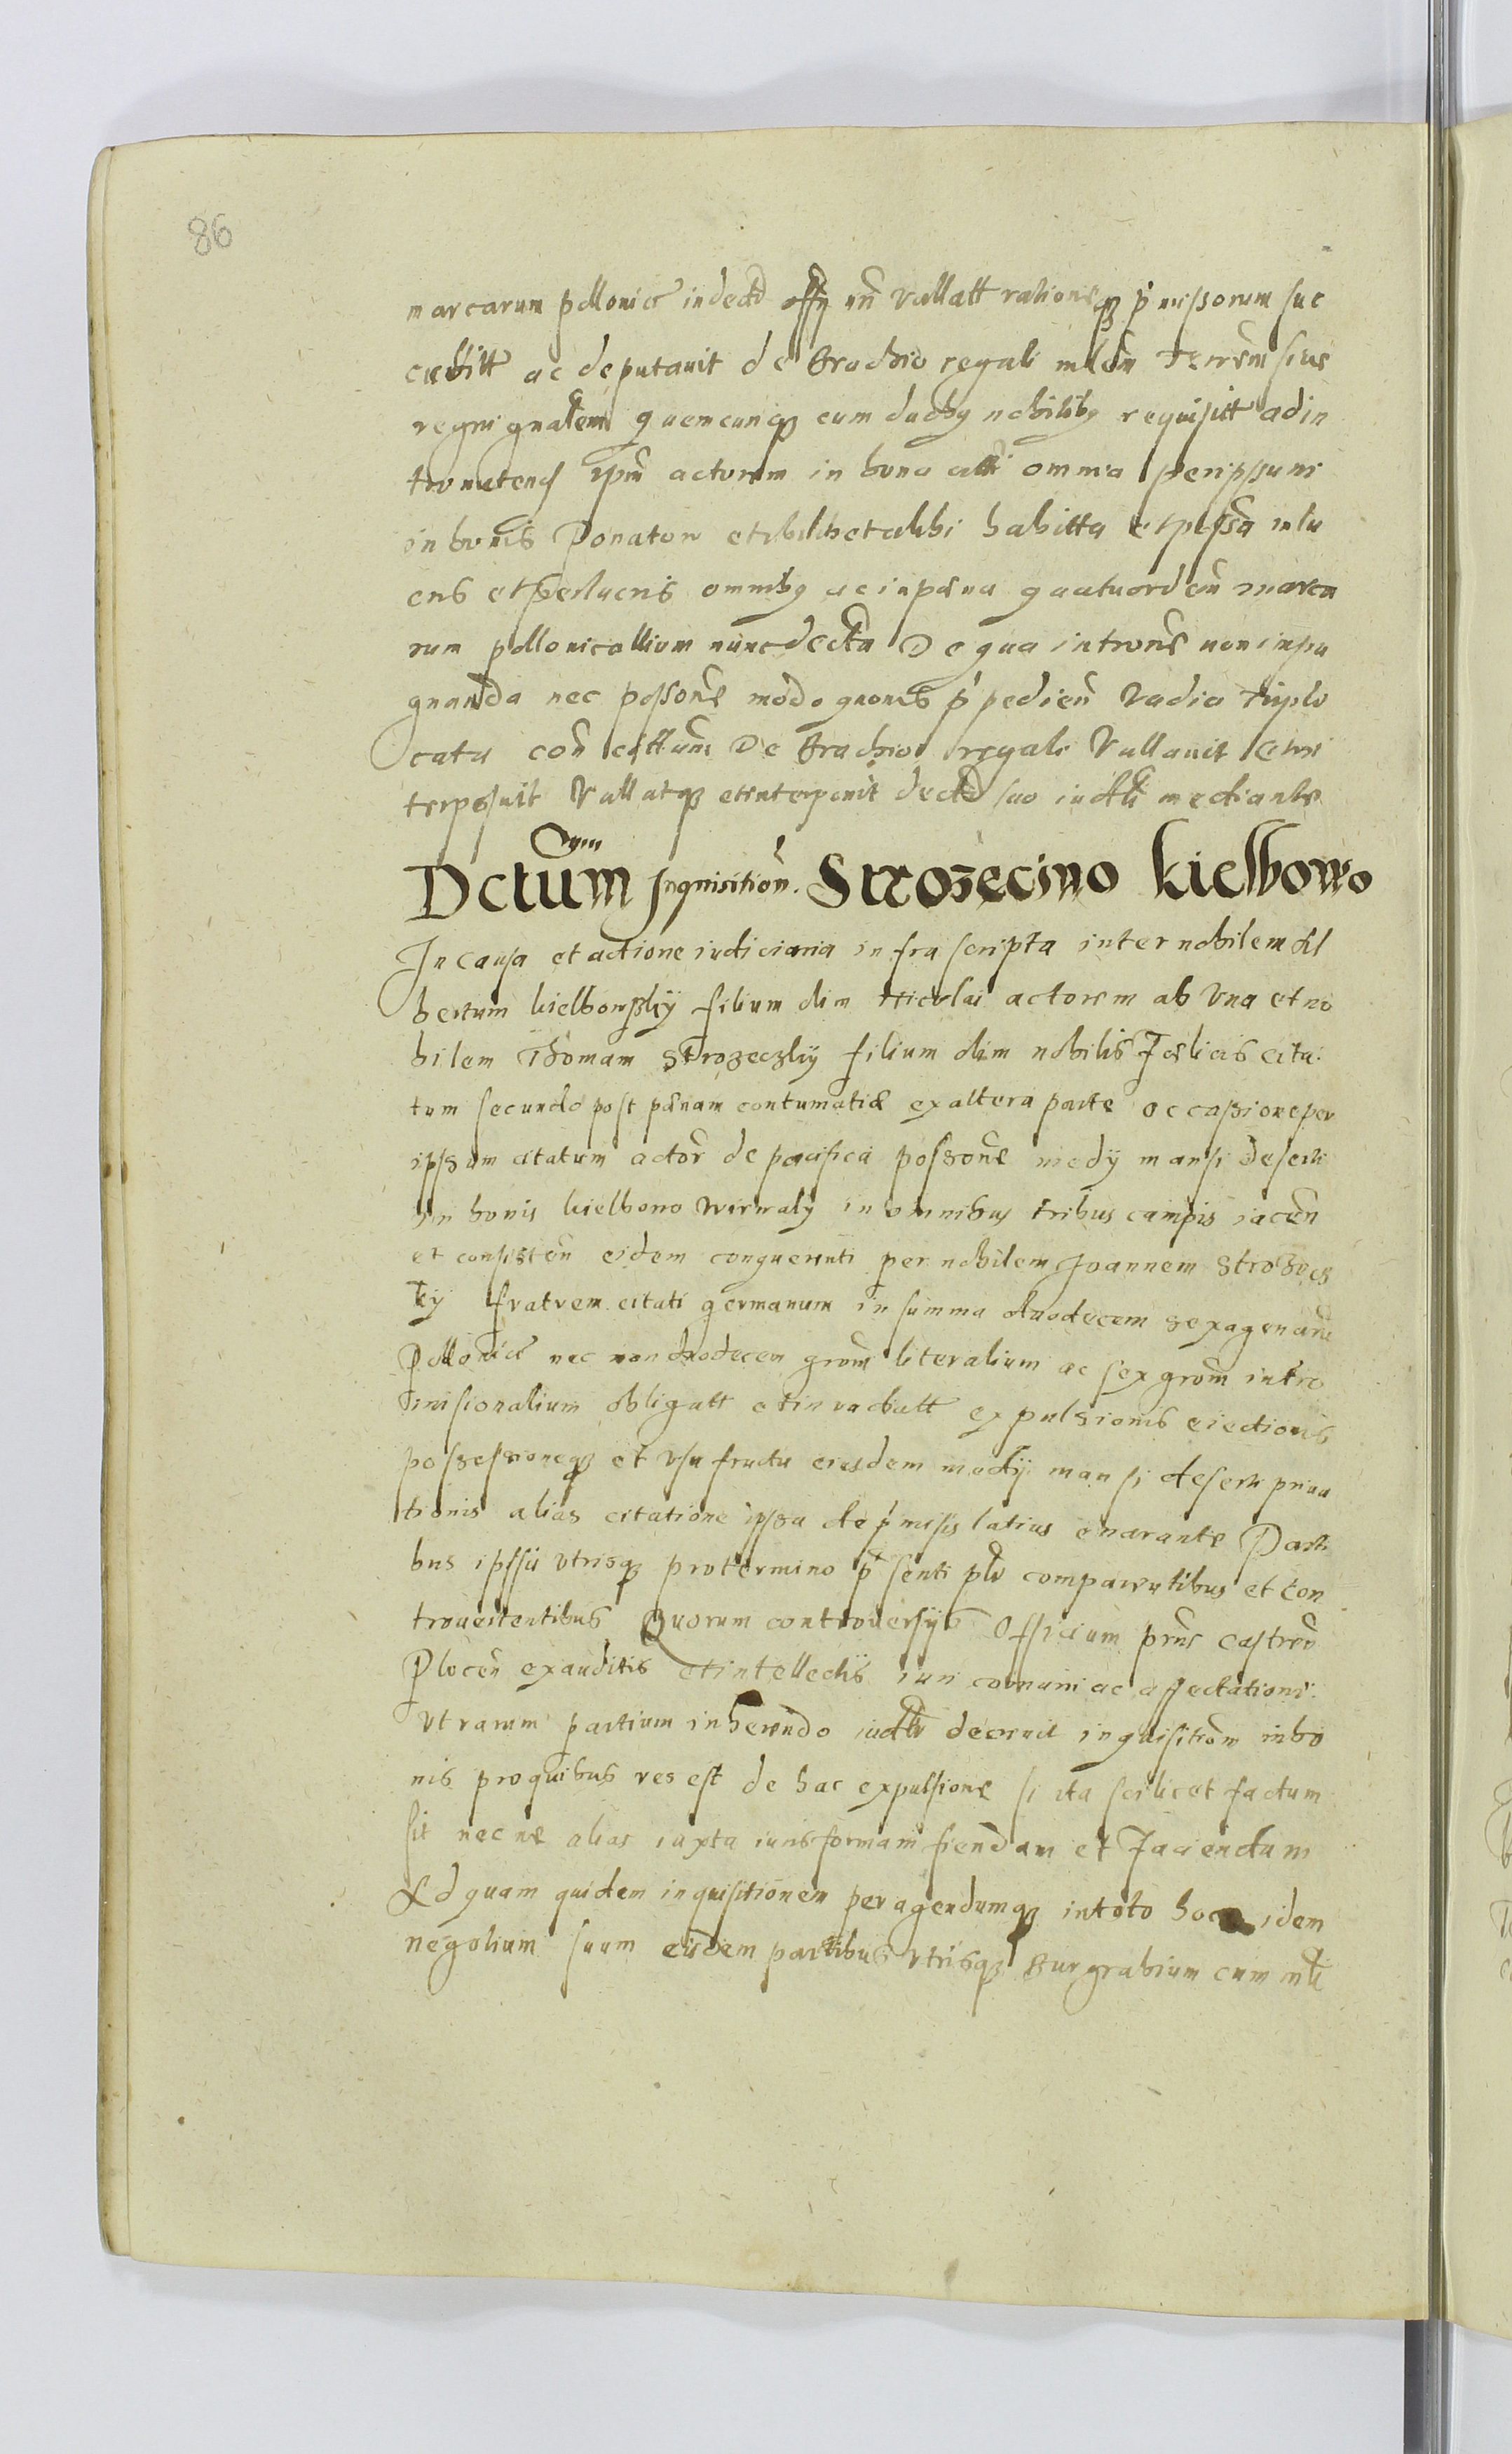 86
marcarum pollonic in decto offy nn vallatt rationeq p missorum suc
cubitt ac deputauit de brachio regali mlem Terrem siue
regni gnalem quemcunq cum duobq nobilibq requisitt ad in
tromitend ipm actorem in bona citti omnia per ipsum
in bonis Donatow et vbilibet alibi habitta et possa mlu
cris et perlucris omnibq ac in pæna quatuordecim marca
rum pollonicallium nunc decta De qua introne non impu
gnanda nec possone modo quouis p pedien Vadia triplo
cata con cittum De brachio regali Vallauit et in
terposuit Vallatq et interponit decto suo iudcli mediante
Dctum Cum Inquisition. Strozecino kielbowo
In causa et actione iudiciaria infra scripta inter nobilem Al
bertum kielbowsky filium olim Nicolai actorem ab Vna et no
bilem Thomam Strozeczky filium olim nobilis Felicis cita
tum secundo post pænam contumatiæ ex altera parte occasione per
ipsum citatum actor de pacifica possone medy mansi deserti
in bonis kielbowo wirwaly in omnibus tribus campis iacen
et consisten eidem conquerenti per nobilem Joannem Strozecz
ky fratrem citati germanum in summa duodecem sexagenare
Pollonic nec non duodecem grom literalium ac sex grom intro
misionalium obligatt et inuadiatt expulsionis eiectionis
possessioneq et vsu fructu eiusdem medy mansi deserti priua
tionis alias citatione ipsa de p misis latius enarante Parti
bus ipsis vtrisq pro termino p senti plr comparentibus et con
trouertentibus Quorum controuersys Officium prns castren
Plocen exauditis et intellectis iuri comuni ac affectationi
vtrarum partium inherendo iudclr decreuit inquisitiom in bo
nis pro quibus res est de hac expulsione si ita scilicet factum
sit nec ne alias iuxta iuris formam fiendam et Faciendam
Ad quam quidem inquisitionem peragendumq in toto hoc idem
negotium suum eisdem partibus vtrisq Burgrabium cum mli